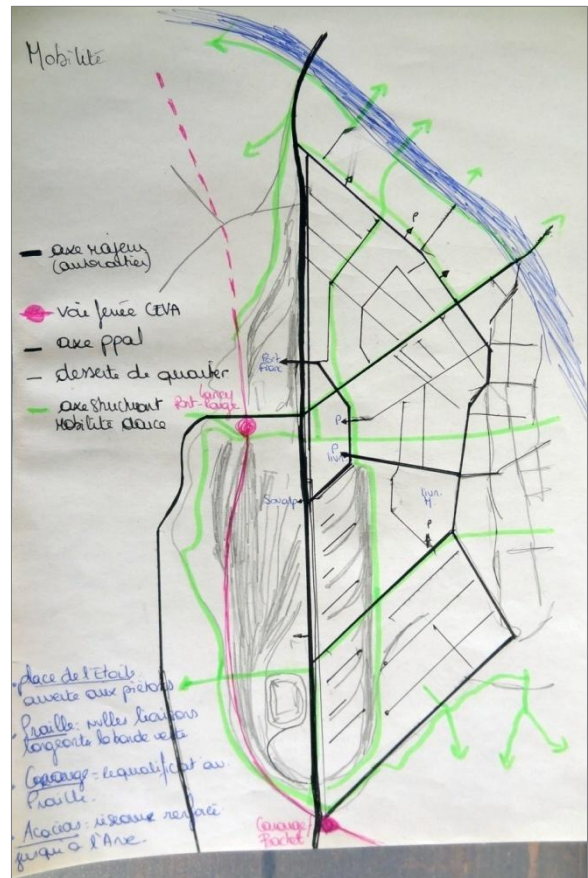 Mobilité
axe majeur
(autoroutier)
voie ferrée CEVA
axe ppal
desserte de quartier
axe structurant
mobilité douce
Lancy
Pont-Rouge
Port
Franc
P
P
P
livr.
livr.
P
Carouge
Bachet
• place de l'Etoile
ouverte aux piétons
• Praille: milles liaisons
longeante la barde verte
• Carouge = requalificat au
Praille.
• Acacias: réseaux renforcé
jusqu'à l'Arve.